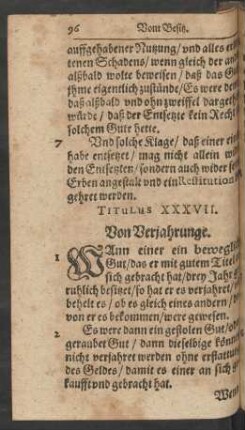 96 Vom Besitz.
auffgehabener Nutzung/ vnd alles er
tenen Schadens/ wenn gleich der an
alßbald wolte beweisen/ daß das G
jhme eigentlich zustünde/ Es were den
daß alßbald vnd ohn zweiffel dargeh
würde/ daß der Entsetzte kein Recht
solchem Gute hette.
7 Vnd solche Klage/ daß einer ein
habe entsetzet/ mag nicht allein wi
den Entsetzten/ sondern auch wider se
Erben angestalt vnd ein Restitution
gehret werden.
TITULUS XXXVII.
Von Verjahrunge.
1 WAnn einer ein beweglich
Gut/ das er mit gutem Titel
sich gebracht hat/ drey Jahr
ruhlich besitzet/ so hat er es verjahret/
behelt es/ ob es gleich eines andern/
von er es bekommen/ were gewesen.
2 Es were dann ein gestolen Gut/ o
geraubet Gut/ dann dieselbige könn
nicht verjahret werden ohne erstattun
des Geldes/ damit es einer an sich g
kaufft vnd gebracht hat.
Wen